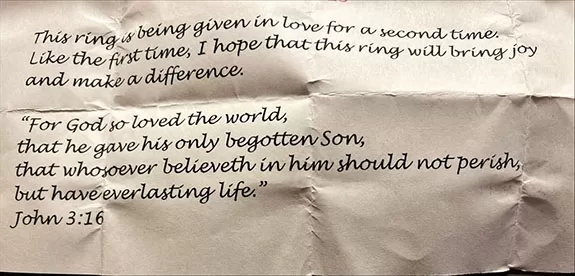 This ring is being given in love for a second time.
Like the first time, I hope that this ring will bring joy
and make a difference.
“For God so loved the world,
that he gave his only begotten Son,
that whosoever believeth in him should not perish,
but have everlasting life.”
John 3:16